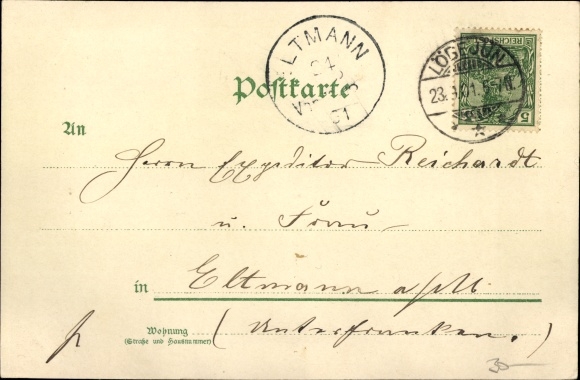 ELTMANN
24
Postkarte
LÖGEJUN
23.
REICHSPOST
5
An
Herrn Expeditor Reichardt
u. Frau
in Eltmann a/M
Wohnung
(Straße und Hausnummer)
(Unterfranken.)
30